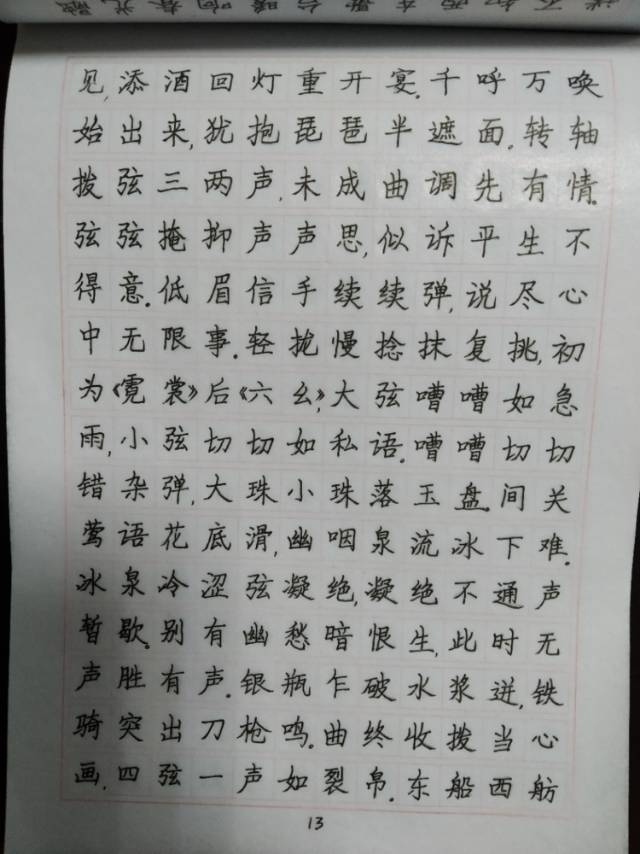 见,添酒回灯重开宴.千呼万唤
始出来,犹抱琵琶半遮面.转轴
拨弦三两声,未成曲调先有情.
弦弦掩抑声声思,似诉平生不
得意.低眉信手续续弹,说尽心
中无限事.轻拢慢捻抹复挑,初
为《霓裳》后《六幺》,大弦嘈嘈如急
雨,小弦切切如私语.嘈嘈切切
错杂弹,大珠小珠落玉盘.间关
莺语花底滑,幽咽泉流冰下难.
冰泉冷涩弦凝绝,凝绝不通声
暂歇.别有幽愁暗恨生,此时无
声胜有声.银瓶乍破水浆迸,铁
骑突出刀枪鸣.曲终收拨当心
画,四弦一声如裂帛.东船西舫
13